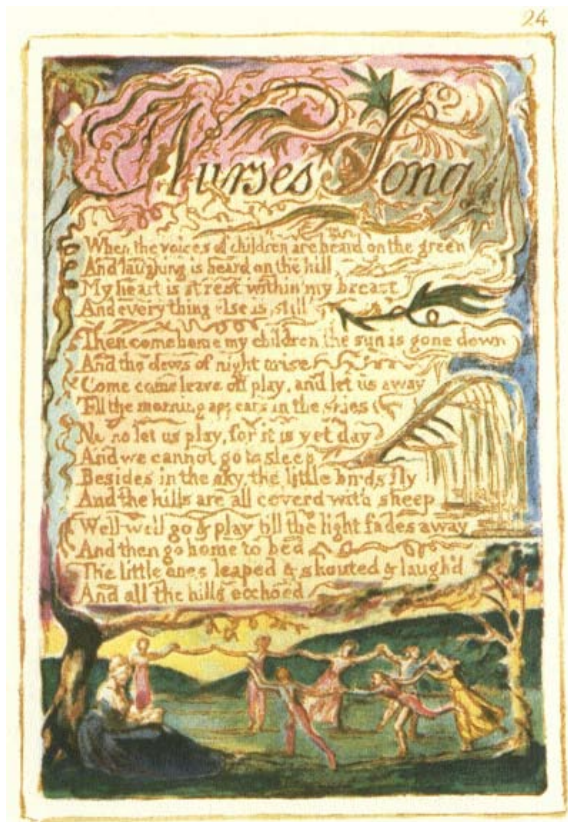 24
Nurses Song
When the voices of children are heard on the green
And laughing is heard on the hill
My heart is at rest within my breast
And every thing else is still
Then come home my children the sun is gone down
And the dews of night arise
Come come leave off play, and let us away
Till the morning appears in the skies
No no let us play, for it is yet day
And we cannot go to sleep
Besides in the sky, the little birds fly
And the hills are all coverd with sheep
Well well go & play till the light fades away
And then go home to bed
The little ones leaped & shouted & laugh'd
And all the hills ecchoed